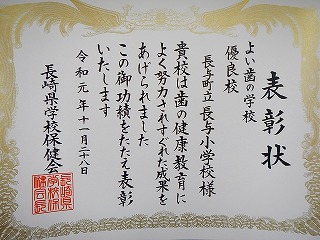 表彰状
よい歯の学校
優良校
長与町立長与小学校様
貴校は歯の健康教育に
よく努力されすぐれた成果を
あげられました
この御功績をたたえ表彰
いたします
令和元年十一月二十八日
長崎県学校保健会